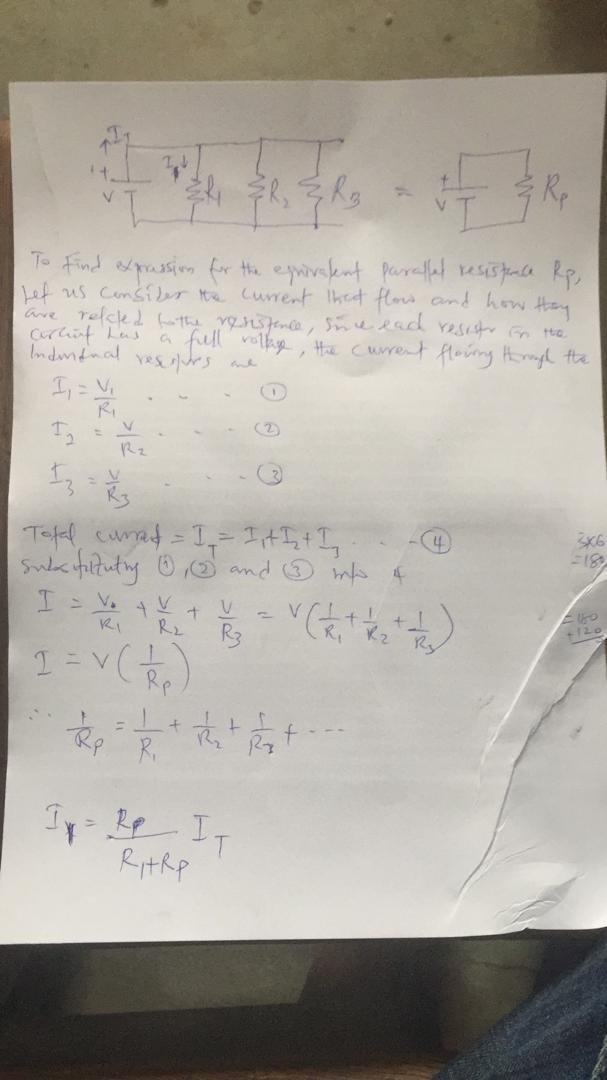 I
+
V
I₁ ↓
R₁
R₂
R₃
=
+
V
Rp
To Find expression for the equivalent Parallel resistance Rp,
Let us Consider the Current that flow and how they
are related to the resistance, Since each resistor in the
circuit has a full voltage, the current flowing through the
Individual resistors are
I₁ = V₁/R₁ . . . . ①
I₂ = V/R₂ . . . . ②
I₃ = V/R₃ . . . . ③
Total current = I_T = I₁+I₂+I₃ . . . . ④
Substituting ①, ② and ③ into 4
I = V/R₁ + V/R₂ + V/R₃ = V(1/R₁ + 1/R₂ + 1/R₃)
I = V(1/Rp)
∴ 1/Rp = 1/R₁ + 1/R₂ + 1/R₃ + ----
I = Rp/(R₁+Rp) I_T
3×6
=180
=180
+120